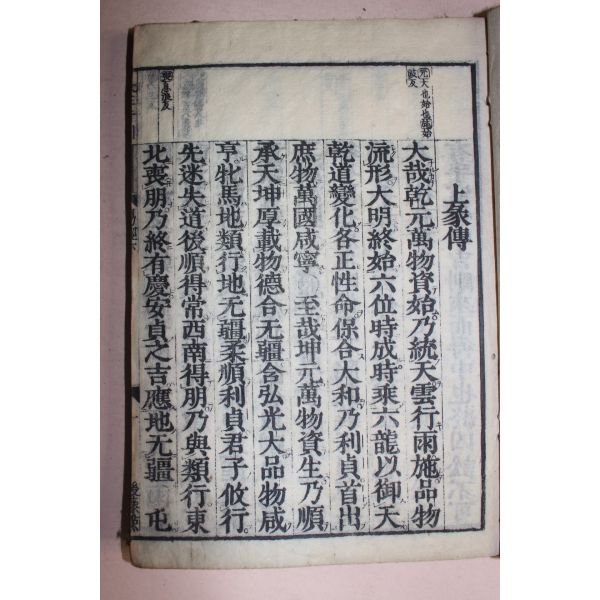 上彖傳
大哉乾元萬物資始乃統天雲行雨施品物
流形大明終始六位時成時乘六龍以御天
乾道變化各正性命保合大和乃利貞首出
庶物萬國咸寧○至哉坤元萬物資生乃順
承天坤厚載物德合无疆含弘光大品物咸
亨牝馬地類行地无疆柔順利貞君子攸行
先迷失道後順得常西南得朋乃與類行東
北喪朋乃終有慶安貞之吉應地无疆 屯